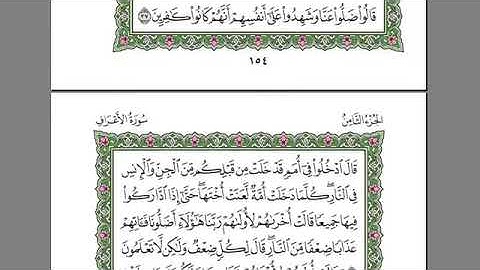 قَالُوا۟ ضَلُّوا۟ عَنَّا وَشَهِدُوا۟ عَلَىٰٓ أَنفُسِهِمْ أَنَّهُمْ كَانُوا۟ كَٰفِرِينَ ٣٧
١٥٤
الجزء الثامن سورة الأعراف
قَالَ ٱدْخُلُوا۟ فِىٓ أُمَمٍ قَدْ خَلَتْ مِن قَبْلِكُم مِّنَ ٱلْجِنِّ وَٱلْإِنسِ
فِى ٱلنَّارِ كُلَّمَا دَخَلَتْ أُمَّةٌ لَّعَنَتْ أُخْتَهَا حَتَّىٰٓ إِذَا ٱدَّارَكُوا۟
فِيهَا جَمِيعًا قَالَتْ أُخْرَىٰهُمْ لِأُولَىٰهُمْ رَبَّنَا هَٰٓؤُلَآءِ أَضَلُّونَا فَـَٔاتِهِمْ
عَذَابًا ضِعْفًا مِّنَ ٱلنَّارِ قَالَ لِكُلٍّ ضِعْفٌ وَلَٰكِن لَّا تَعْلَمُونَ